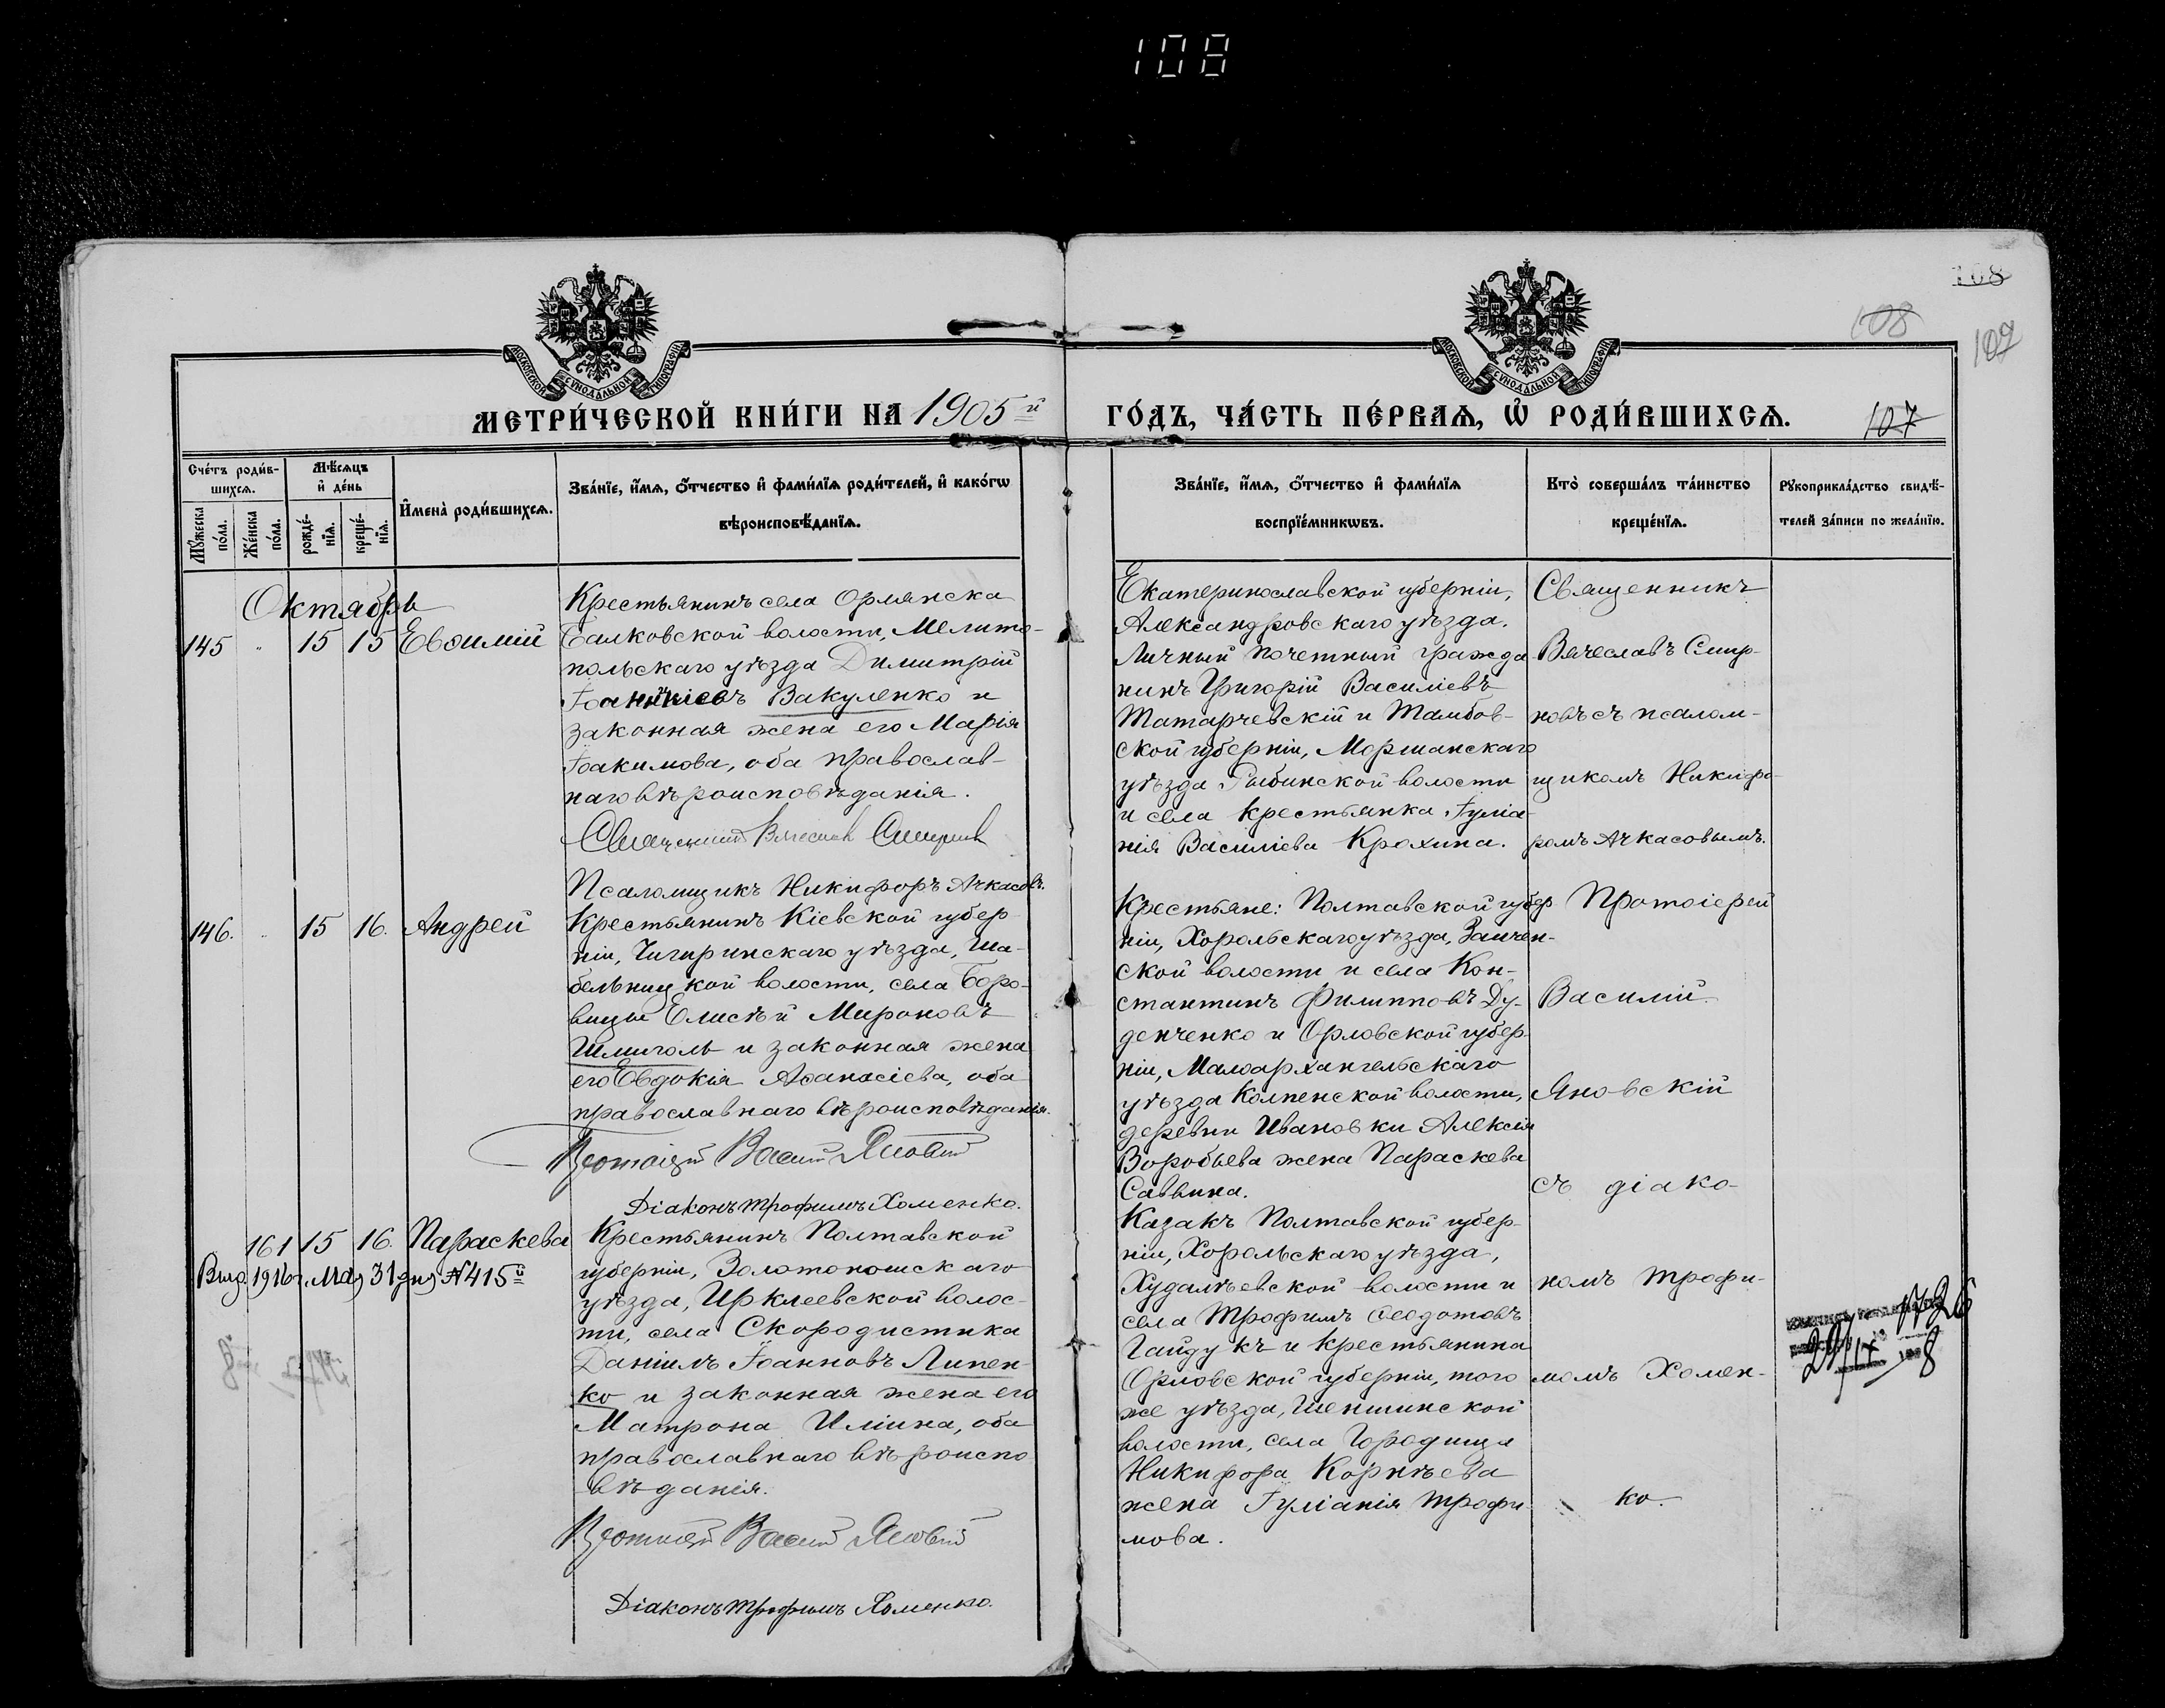 108
108
108
107
107
МОСКОВСКОЙ СѴНОДАЛЬНОЙ ТИПОГРАФІИ
МОСКОВСКОЙ СѴНОДАЛЬНОЙ ТИПОГРАФІИ
МЕТРИ́ЧЕСКОЙ КНИ́ГИ НА 1905й
ГО́ДЪ, ЧА́СТЬ ПЕ́РВАѦ, Ѡ҆ РОДИ́ВШИХСѦ.
Сче́тъ роди́в-
шихсѧ.
Мѣ́сѧцъ
и҆ де́нь
Мꙋ́жеска
по́ла.
Же́нска
по́ла.
рожде́-
нїѧ.
креще́-
нїѧ.
И҆мена̀ роди́вшихсѧ.
Зва́нїе, и҆́мѧ, ѻ҆́тчество и҆ фами́лїѧ роди́телей, и҆ како́гѡ
вѣроисповѣ́данїѧ.
Зва́нїе, и҆́мѧ, ѻ҆́тчество и҆ фами́лїѧ
воспрїе́мникѡвъ.
Кто̀ соверша́лъ та́инство
креще́нїѧ.
Рꙋкоприкла́дство свидѣ́-
телей за́писи по жела́нїю.
Октябрь
145 " 15 15 Евѳимій
Крестьянинъ села Орлянска
Балковской волости, Мелито-
польскаго уѣзда Димитрій
Іоанникіевъ Вакуленко и
законная жена его Марія
Іоакимова, оба православ-
наго вѣроисповѣданія.
Священникъ Вячеславъ Смирновъ
Псаломщикъ Никифоръ Ачкасовъ.
Екатеринославской губерніи,
Александровскаго уѣзда.
Личный почетный гражда
нинъ Григорій Василіевъ
Татарчевскій и Тамбов-
ской губерніи, Моршанскаго
уѣзда Рыбинской волости
и села крестьянка Іуліа-
нія Василіева Крохина.
Священникъ
Вячеславъ Смир-
новъ съ псалом-
щикомъ Никифо-
ромъ Ачкасовымъ.
146. " 15 16. Андрей
Крестьянинъ Кіевской губер-
ніи, Чигиринскаго уѣзда, Ша-
бельницкой волости, села Боро-
вицы Елисѣй Мироновъ
Шмиголь и законная жена
его Евдокія Аѳанасіева, оба
православнаго вѣроисповѣданія.
Протоіерей Василій Яновскій
Діаконъ Трофимъ Хоменко.
Крестьяне: Полтавской губер
ніи, Хорольскаго уѣзда,
ской волости и села Кон-
стантинъ Филипповъ Ду-
денченко и Орловской губер-
ніи, Малоархангельскаго
уѣзда Колпенской волости,
деревни Ивановки Алексія
Воробьева жена Параскева
Саввина.
Протоіерей
Василій
Яновскій
съ діако-
161 15 16. Параскева
Выд. 1916 г. мая 31 дня № 415й
Крестьянинъ Полтавской
губерніи, Золотоношскаго
уѣзда, Ирклеевской волос-
ти, села Скородистика
Даніилъ Іоанновъ Липен-
ко и законная жена его
Матрона Иліина, оба
православнаго вѣроиспо
вѣданія.
Протоіерей Василій Яновскій
Діаконъ Трофимъ Хоменко.
Казакъ Полтавской губер-
ніи, Хорольскаго уѣзда,
Худалѣевской волости и
села Трофимъ Ѳеодотовъ
Гайдукъ и крестьянина
Орловской губерніи, того
же уѣзда, Шеншинской
волости, села Городища
Никифора Корнѣева
жена Іуліанія Трофи-
мова.
номъ Трофи-
момъ Хомен-
ко.